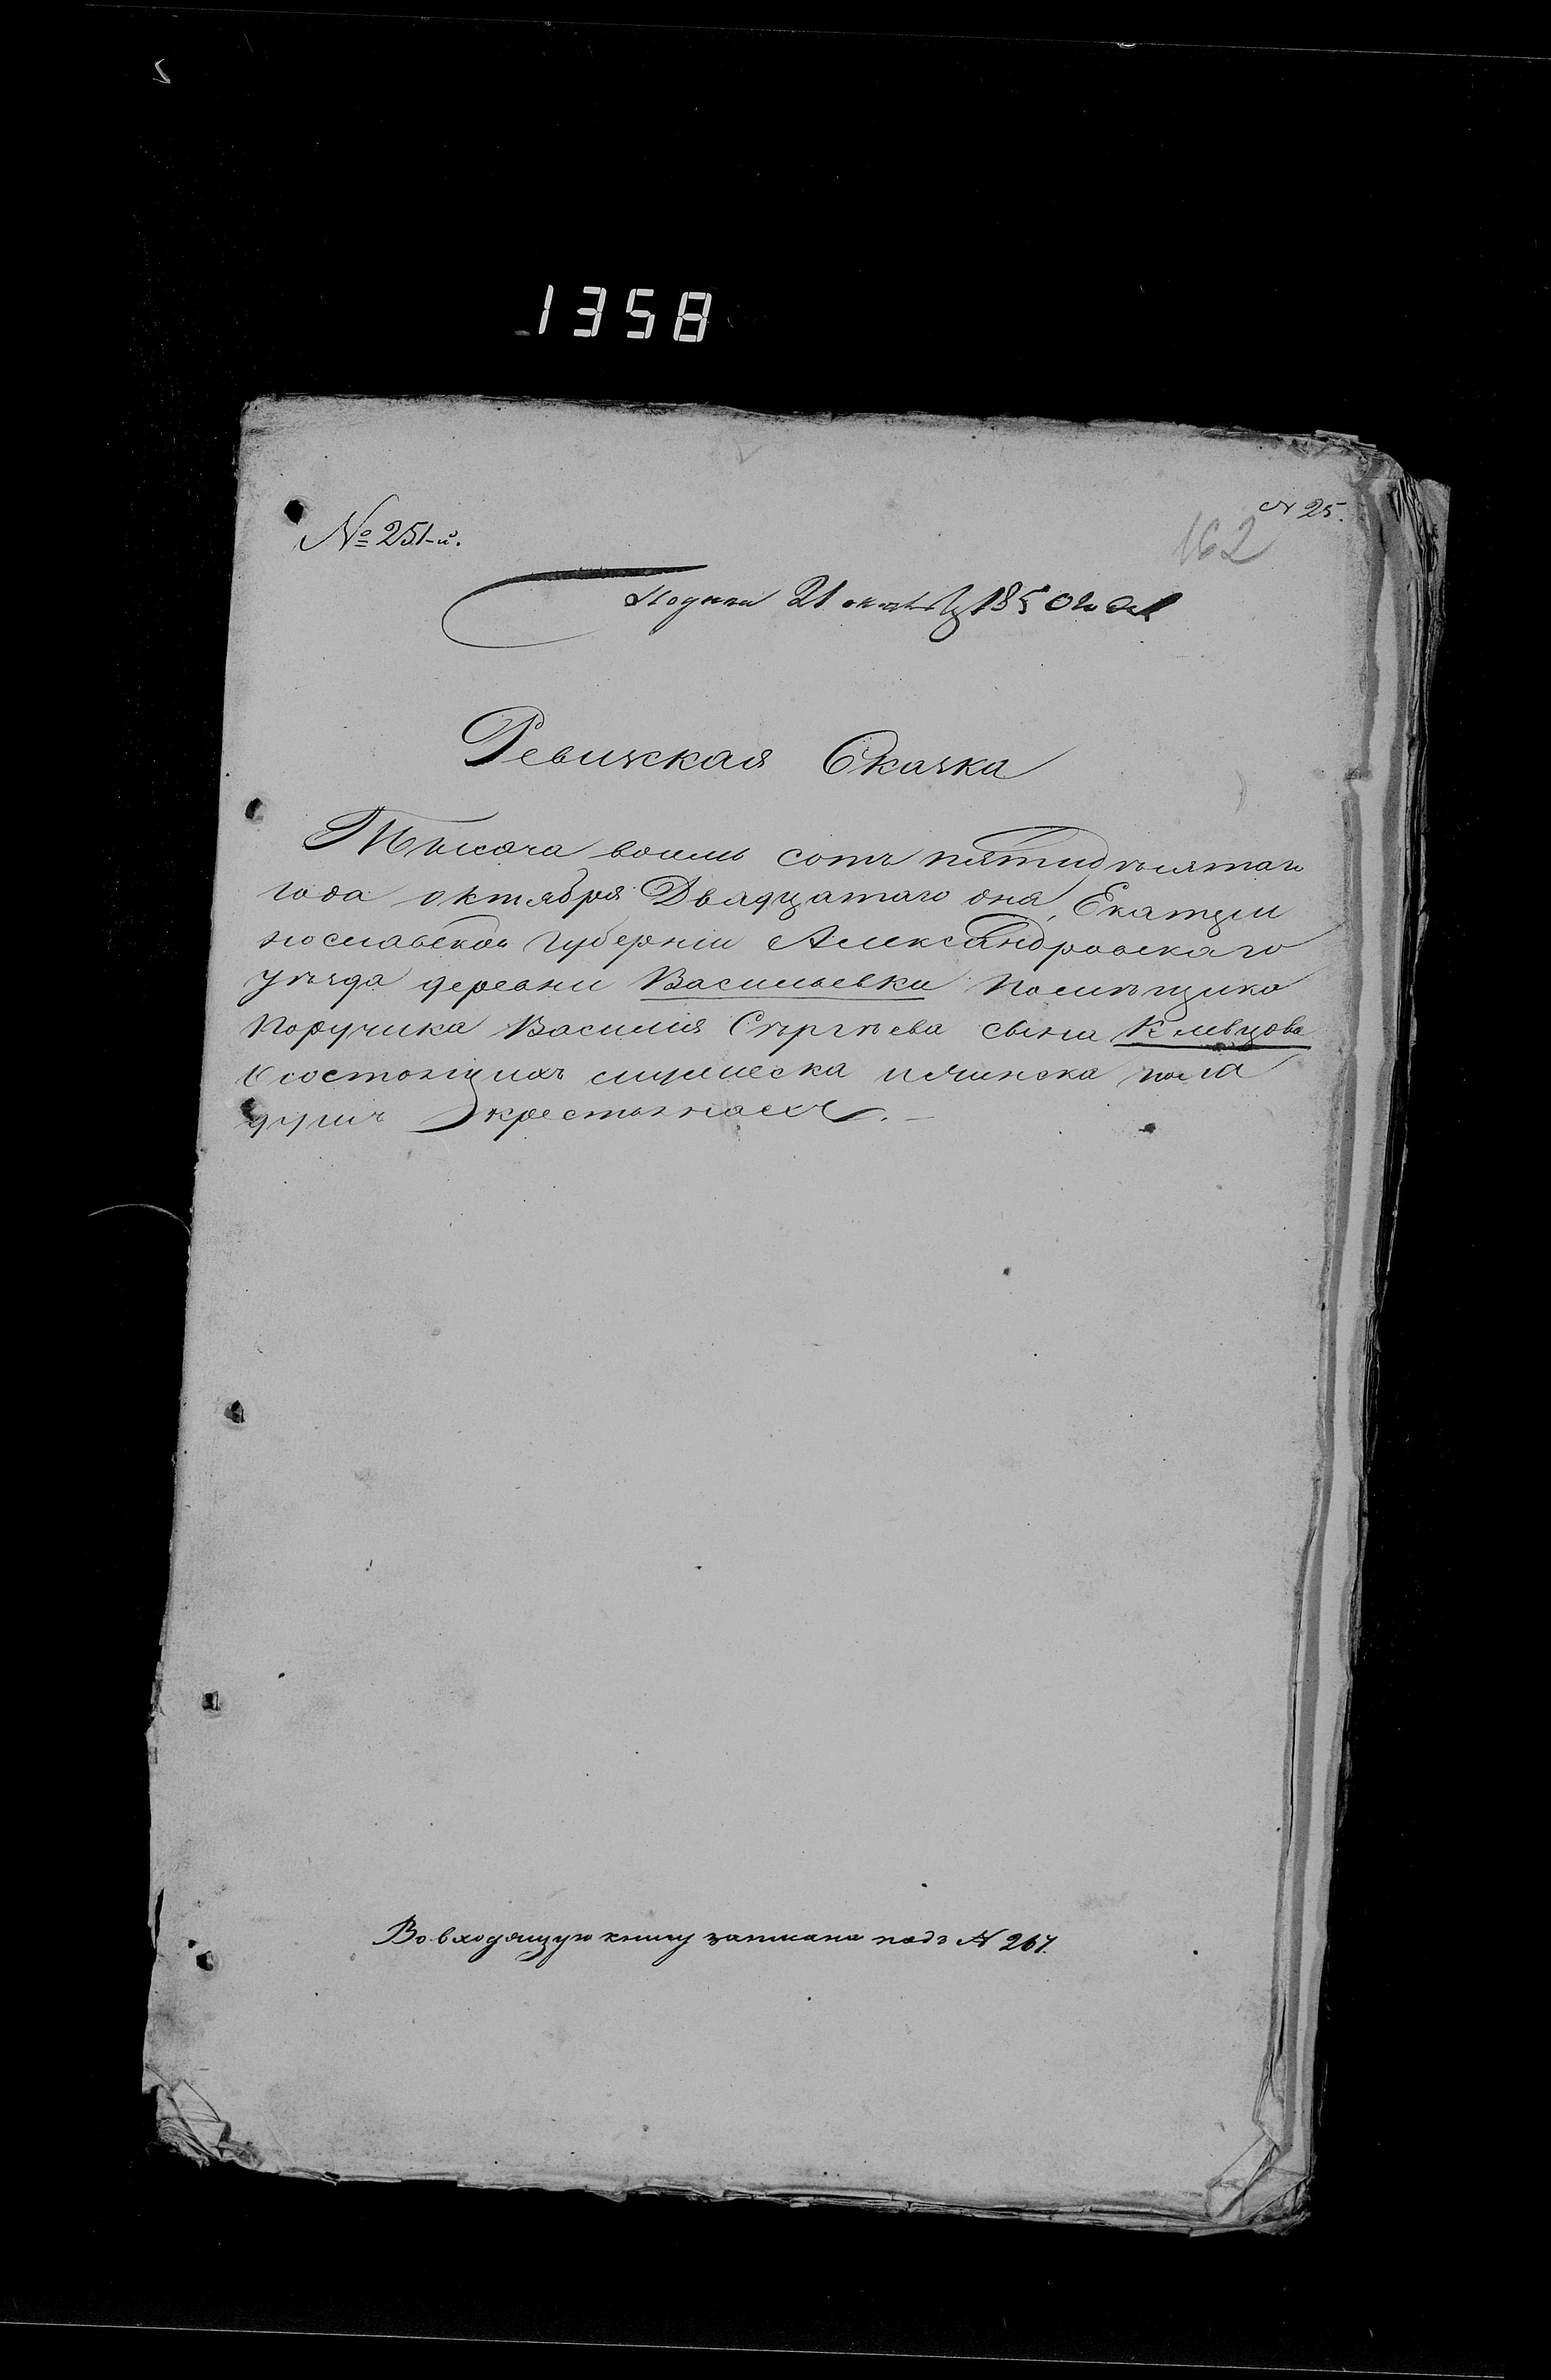 1358
№ 251-й.
N 25.
162
Подана 21 октября 1850 года
Ревижская Скаска
Тысяча восемь сотъ пятидесятаго
года октября Двадцатаго дня, Екатери
нославской губерніи Александровскаго
уѣзда деревни Васильевки помѣщика
Поручика Василія Сергѣева сына Клевцова
о состоящихъ мужеска и женска пола
душъ крестьянахъ. –
Во входящую книгу записана подъ N 267.